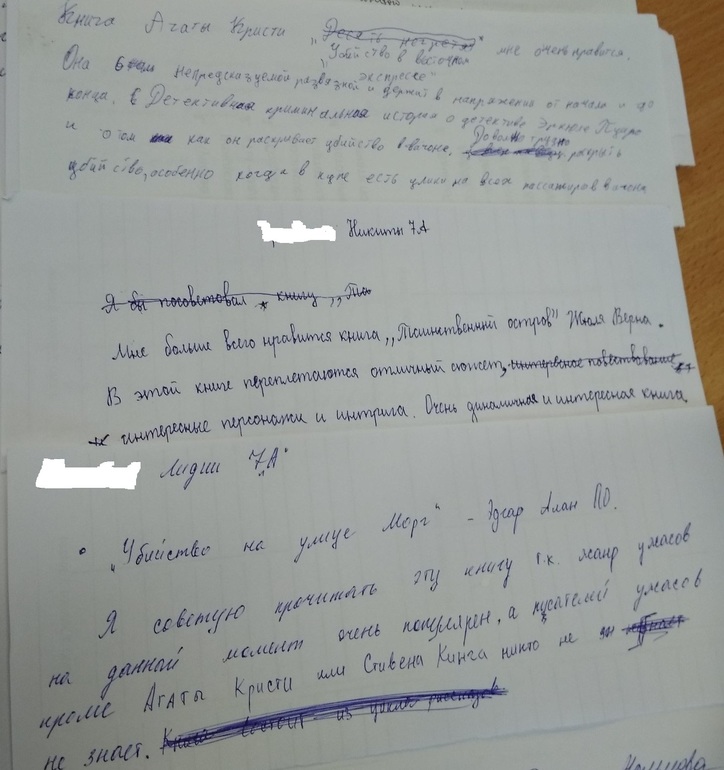 Книга Агаты Кристи „Десять негрят"
„Убийство в восточном мне очень нравится.
экспрессе"
Она непредсказуемой развязкой и держит в напряжении от начала и до
конца. Детективная криминальная история о детективе Эркюле Пуаро
и о том как он раскрывает убийство в вагоне. Довольно раскрыть
убийство, особенно когда в купе есть улики на всех пассажиров вагона
Никиты 7А
Я бы посоветовал книгу „Та
Мне больше всего нравится книга „Таинственный остров" Жюля Верна.
В этой книге переплетаются отличный сюжет, интересное повествование
интересные персонажи и интрига. Очень динамичная и интересная книга
Лидии 7„А"
„Убийство на улице Морг" - Эдгар Алан ПО.
Я советую прочитать эту книгу т.к. жанр ужасов
на данной момент очень популярен, а писателей ужасов
кроме Агаты Кристи или Стивена Кинга никто не
не знает. из цикла рассказов